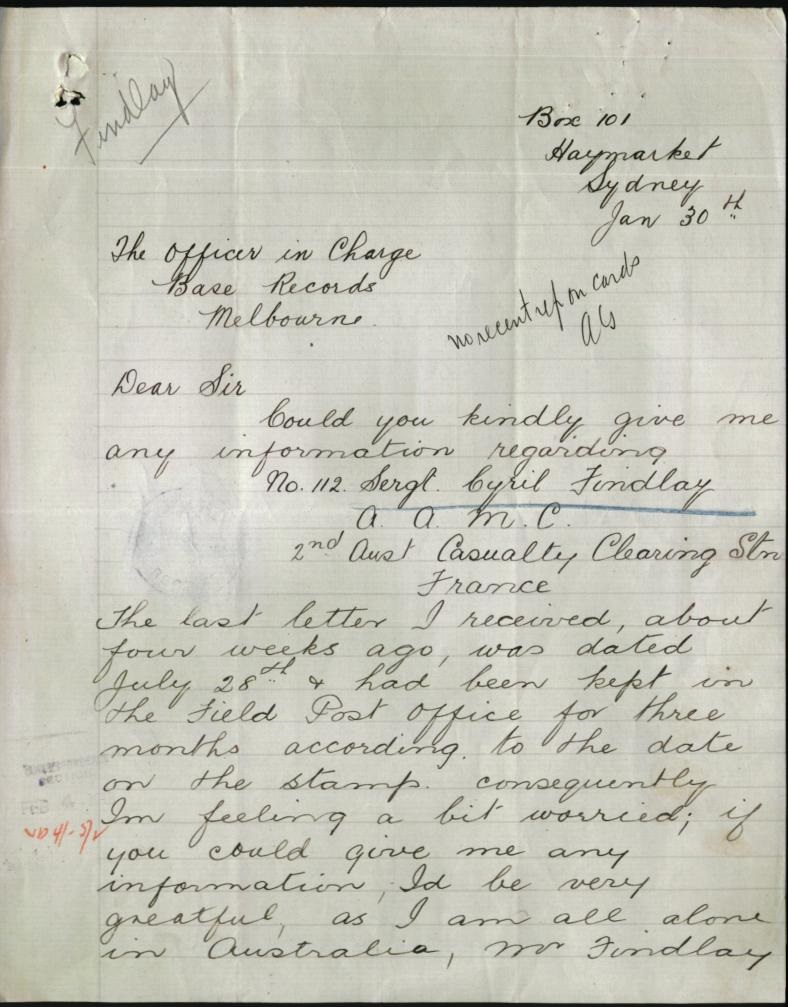 Findlay
Box 101
Haymarket
Sydney
Jan 30th
The Officer in Charge
Base Records
Melbourne.
no recent rep on cards
Dear Sir
Could you kindly give me
any information regarding
No. 112. Sergt. Cyril Findlay
A. A. M. C.
2nd Aust Casualty Clearing Stn
France
The last letter I received, about
four weeks ago, was dated
July 28th & had been kept in
the Field Post Office for three
months according. to the date
on the stamp. consequently
FEB 4
Im feeling a bit worried; if
you could give me any
information, Id be very
greatful, as I am all alone
in Australia, Mr Findlay